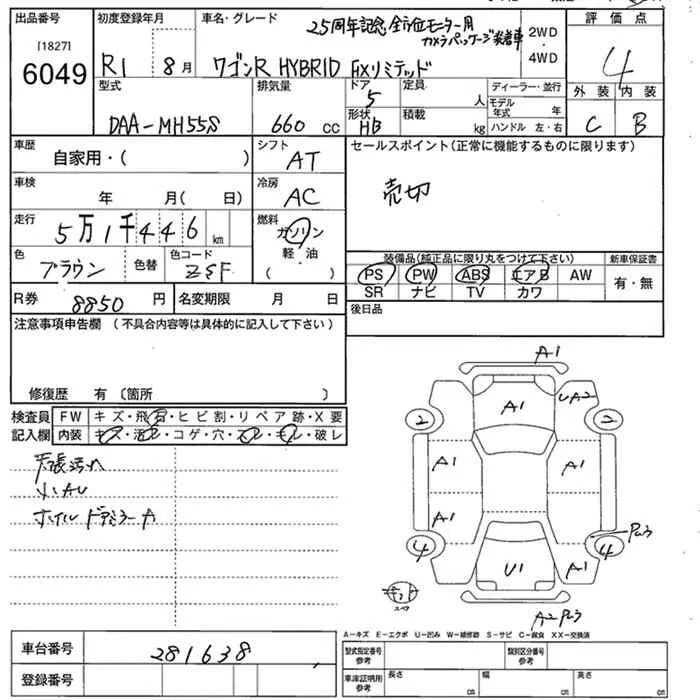 出品番号 初度登録年月 車名・グレード 25周年記念 全方位モニター用 2WD・4WD 評価点
カメラパッケージ装着車
[1827]
6049 R1 8月 ワゴンR HYBRID FXリミテッド 4
型式 排気量 ドア 5 定員 人 ディーラー・並行 外装 内装
DAA-MH55S 660cc 形状 HB 積載 kg モデル年式 年 ハンドル 左・右 C B
車歴 自家用・( ) シフト AT セールスポイント(正常に機能するものに限ります)
車検 年 月( 日) 冷房 AC 売切
走行 5万1千446km 燃料 ガソリン
軽・油
( )
色 ブラウン 色替 色コード ZCF 装備品(純正品に限り丸をつけて下さい) 新車保証書
PS PW ABS エアB AW 有・無
SR ナビ TV カワ
R券 8850円 名変期限 月 日 後日品
注意事項申告欄 (不具合内容等は具体的に記入して下さい)
修復歴 有 〔箇所 〕
検査員 FW キズ・飛石・ヒビ割・リペア跡・X要
記入欄 内装 キズ・汚レ・コゲ・穴・スレ・モレ・破レ
天張汚れ
小AU
ホイル ドアミラーA
A1
A1 UA2
2 2
A1 A1
A1
4 4 Pa3
U1 A1
スペア
A2 Pa3
A-キズ E-エクボ U-凹み W-補修跡 S-サビ C-腐食 XX-交換済
車台番号 281638 型式指定番号 参考 類別区分番号 参考
登録番号 車庫証明用 参考 長さ cm 幅 cm 高さ cm